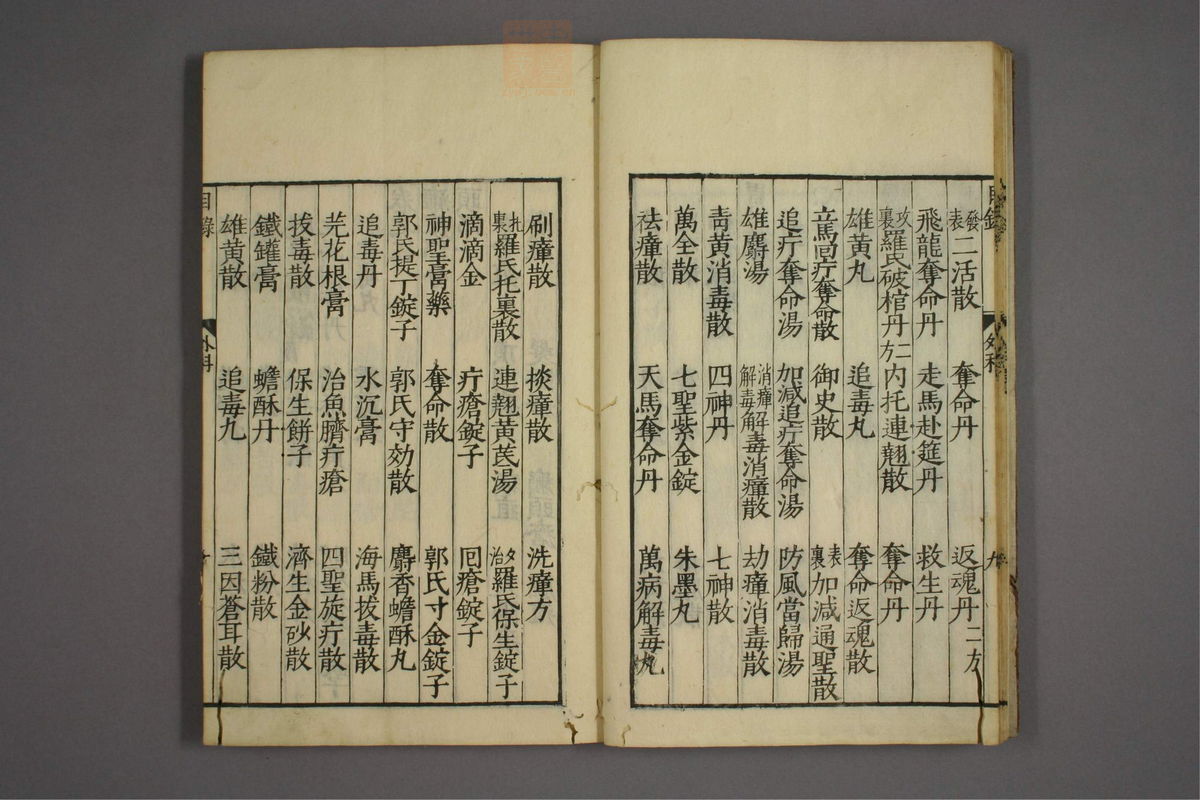 發表二活散 奪命丹 返魂丹二方
飛龍奪命丹 走馬赴筵丹 救生丹
攻裏羅氏破棺丹二方 内托連翹散 奪命丹
雄黄丸 追毒丸 奪命返魂散
立馬回疔奪命散 御史散 表裏加減通聖散
追疔奪命湯 加減追疔奪命湯 防風當歸湯
雄麝湯 消癉解毒解毒消癉散 劫癉消毒散
青黄消毒散 四神丹 七神散
萬全散 七聖紫金錠 朱墨丸
祛癉散 天馬奪命丹 萬病解毒丸
目錄 外科 九
刷癉散 掞癉散 洗癉方
托裏羅氏托裏散 連翹黄茋湯 夕治羅氏保生錠子
滴滴金 疔瘡錠子 囘瘡錠子
神聖膏藥 奪命散 郭氏寸金錠子
郭氏提丁錠子 郭氏守効散 麝香蟾酥丸
追毒丹 水沉膏 海馬拔毒散
芫花根膏 治魚臍疔瘡 四聖旋疔散
拔毒散 保生餅子 濟生金砂散
鐵罐膏 蟾酥丹 鐵粉散
雄黄散 追毒丸 三因蒼耳散
目錄 外科 十